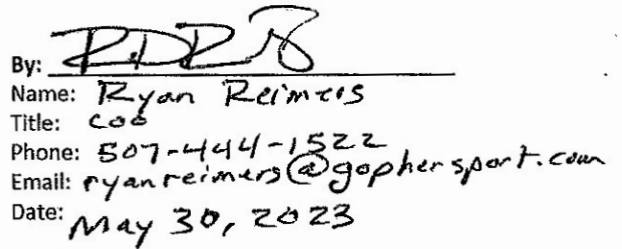 By:
Name: Ryan Reimers
Title: COO
Phone: 507-444-1522
Email: ryanreimers@gophersport.com
Date: May 30, 2023